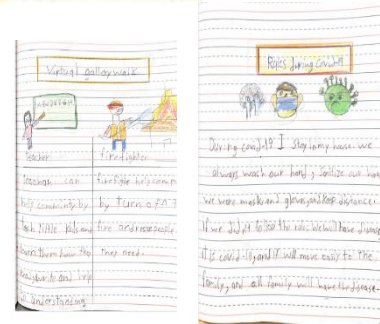 Virtual gallery walk
ABCDEFGH
Teacher
Teacher can
help community by
teach little kids and
learn them how to
and help
understanding
firefighter
firefight help commun
by turn off
fire and rescue people
they need.
Rules during covid-19
During covid-19 I stay in my house we
always wash our hand, sanitize our han
we were mask and gloves, and keep distance.
If we did it follod the rules we will have disease
it is covid-19, and it will move easily to the
family, and all family will have the disease.